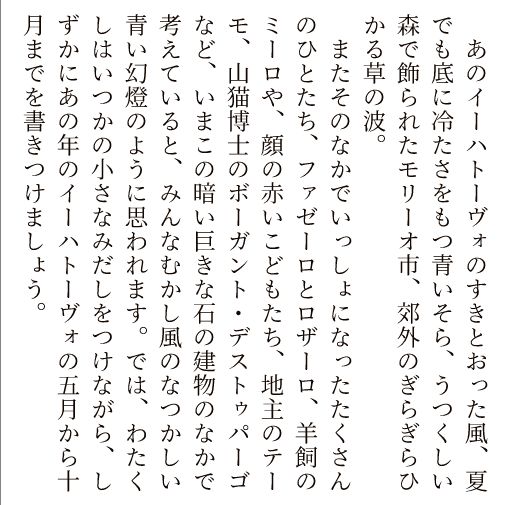 あのイーハトーヴォのすきとおった風、夏
でも底に冷たさをもつ青いそら、うつくしい
森で飾られたモリーオ市、郊外のぎらぎらひ
かる草の波。
またそのなかでいっしょになったたくさん
のひとたち、ファゼーロとロザーロ、羊飼の
ミーロや、顔の赤いこどもたち、地主のテー
モ、山猫博士のボーガント・デストゥパーゴ
など、いまこの暗い巨きな石の建物のなかで
考えていると、みんなむかし風のなつかしい
青い幻燈のように思われます。では、わたく
しはいつかの小さなみだしをつけながら、し
ずかにあの年のイーハトーヴォの五月から十
月までを書きつけましょう。